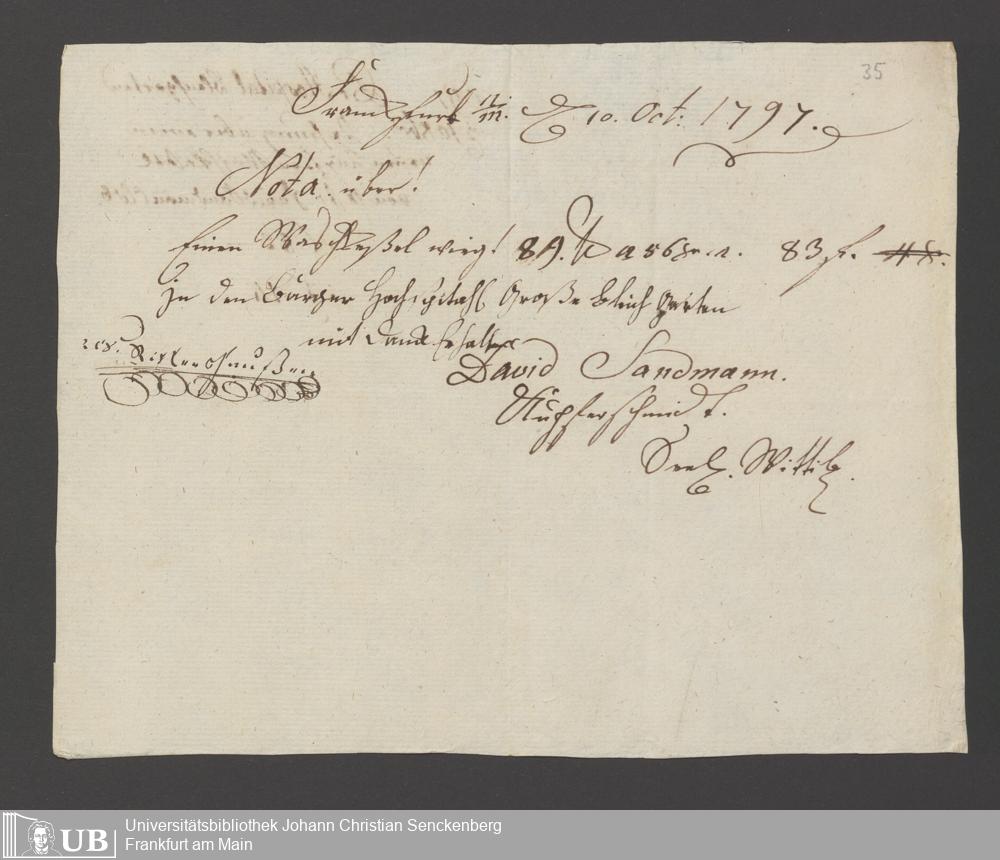 35
Franckfurt a/m. D 10. Oct. 1797.
Nota über!
Einen Waschkeßel wieg! 89. ℔ a 56 83 f.
In den Burger Hochspitahl Große bleich garten
mit Danck Erhalten
David Sandmann.
Kupferschmidt.
Seel. Wittib.
UB
Universitätsbibliothek Johann Christian Senckenberg
Frankfurt am Main